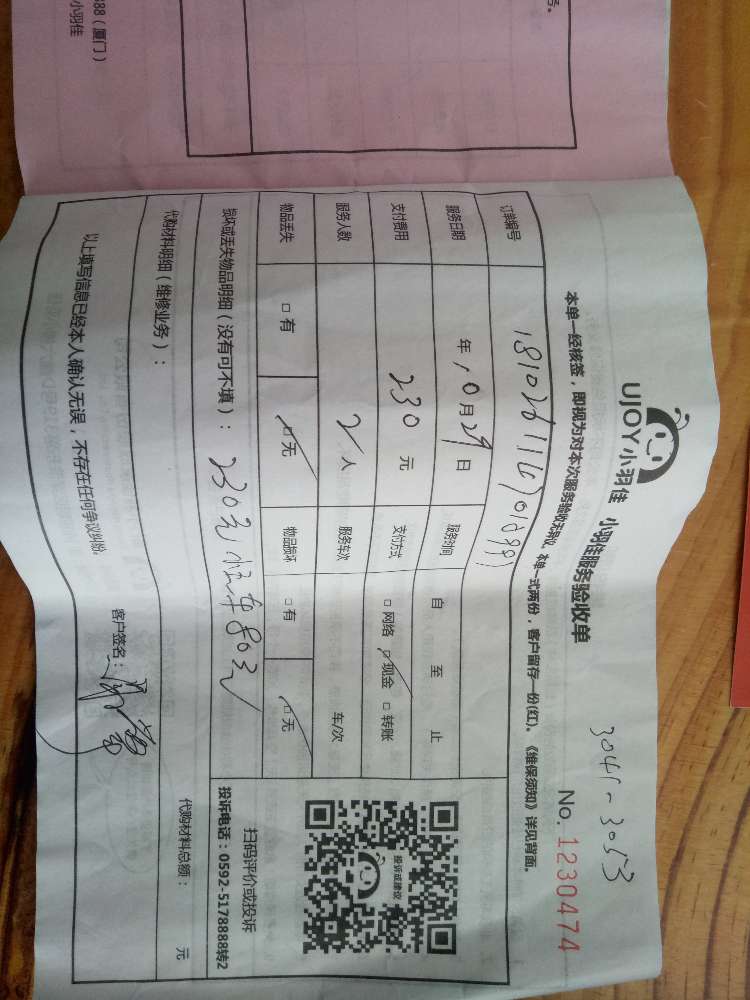 3041~3053
UJOY小羽佳 小羽佳服务验收单
No. 1230474
本单一经核签，即视为对本次服务验收无异议，本单一式两份，客户留存一份(红)。《维保须知》详见背面。
订单编号
服务日期 年10月29日 服务时间 自 至 止
支付费用 230元 支付方式 □网络 ☑现金 □转账
服务人数 2人 服务车次 车/次
物品丢失 □有 ☑无 物品损坏 □有 ☑无
损坏或丢失物品明细（没有可不填）：
代购材料明细（维修业务）：
代购材料总额： 元
投诉或建议
扫码评价或投诉
投诉电话：0592-5178888转2
以上填写信息已经本人确认无误，不存在任何争议纠纷。
客户签名：
号。
888（厦门）
小羽佳